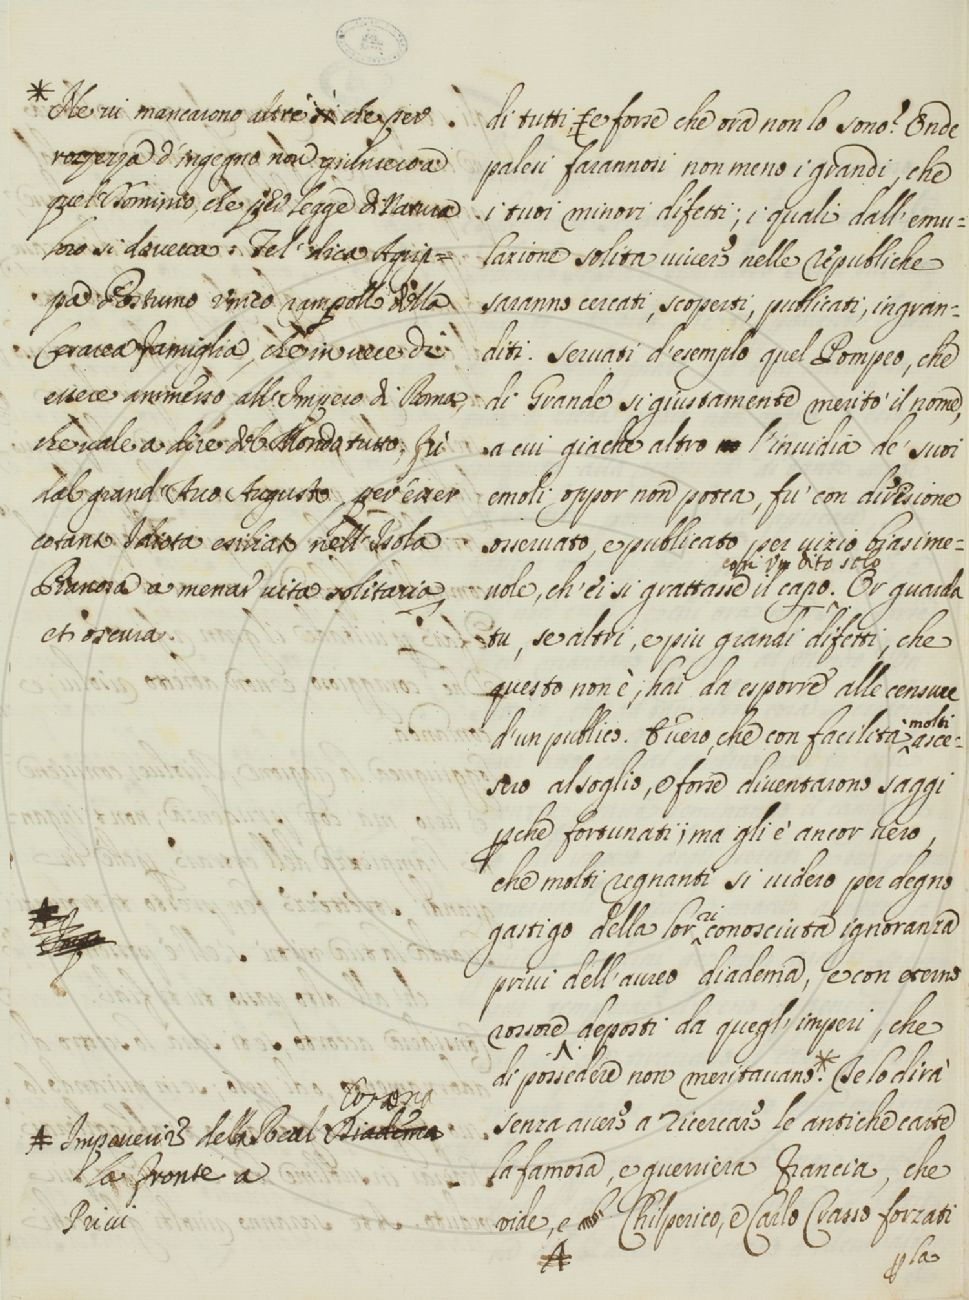 * Ne vi mancarono altresì che per
rozzezza d'ingegno non giunsero a
quel Dominio, che per legge di Natura
loro si doveva. Tel' dica Agrip=
pa Postumo unico rampollo della
Cesarea famiglia, che in vece di
essere ammesso all'Impero di Roma,
che vale a dire del Mondo tutto, fù
dal grand'Avo Augusto, per esser
cotanto Idiota esiliato nell'Isola
Pianosa a menar vita solitaria,
et oscura.
A Impoverir della Real Diadema Corona
la fronte a
Privi
di tutti, e forse che ora non lo sono? Onde
palesi farannosi non meno i grandi, che
i tuoi minori difetti; i quali dall'emu=
lazione solita viver nelle republiche
saranno cercati, scoperti, publicati, ingran=
diti. Servati d'esempio quel Pompeo, che
di Grande si giustamente meritò il nome,
a cui giache altro l'invidia de' suoi
emoli oppor non potea, fù con derisione
osservato, e publicato per vizio biasime=
con un dito solo
vole, ch'ei si grattasse il capo. Or guarda
tu, se altri, e piu grandi difetti, che
questo non è, hai da esporre alle censure
d'un publico. È vero, che con facilità molti asce=
sero al soglio, e forse diventarono saggi
pche fortunati; ma gli è ancor vero,
che molti regnanti si videro per degno
gastigo della lor riconosciuta ignoranza
privi dell'aureo diadema, e con eterno
rossore deposti da quegl'imperi, che
di possedere non meritavano.* Te lo dirà
senza aver a ricercar le antiche carte
la famosa, e guerriera Francia, che
vide, e Chilperico, e Carlo Crasso forzati
A
p la